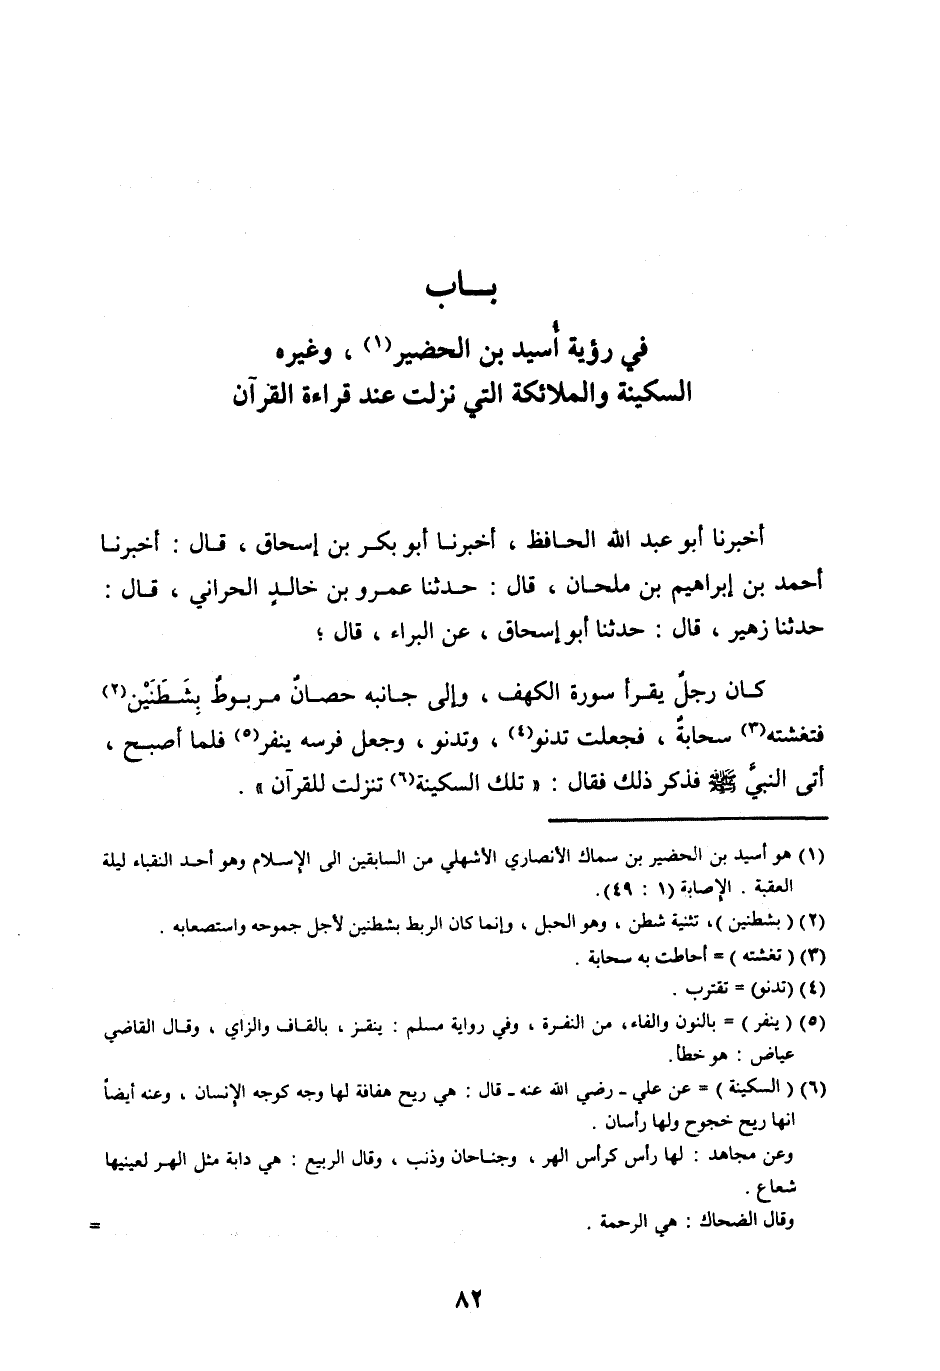 بـــاب
في رؤية أُسيد بن الحضير(١) ، وغيره
السكينة والملائكة التي نزلت عند قراءة القرآن
أخبرنا أبو عبد الله الحـافظ ، أخبرنـا أبو بكـر بن إسحاق ، قـال : أخبرنـا
أحمد بن إبراهيم بن ملحـان ، قال : حـدثنا عمـرو بن خالـدٍ الحراني ، قـال :
حدثنا زهير ، قال : حدثنا أبو إسحاق ، عن البراء ، قال ؛
كـان رجلٌ يقـرأ سورة الكهف ، وإلى جـانبه حصـانٌ مـربـوطٌ بِشَـطَنَيْن(٢)
فتغشته(٣) سحابةٌ ، فجعلت تدنو(٤) ، وتدنو ، وجعل فرسه ينفر(٥) فلما أصبـح ،
أتى النبيَّ ﷺ فذكر ذلك فقال : « تلك السكينة(٦) تنزلت للقرآن » .
(١) هو أسيد بن الحضير بن سماك الأنصاري الأشهلي من السابقين الى الإسـلام وهو أحـد النقباء ليلة
العقبة . الإصابة (١ : ٤٩).
(٢) ( بشطنين )، تثنية شطن ، وهو الحبل ، وإنما كان الربط بشطنين لأجل جموحه واستصعابه .
(٣) ( تغشته ) = أحاطت به سحابة .
(٤) (تدنو) = تقترب .
(٥) ( ينفر ) = بالنون والفاء، من النفـرة ، وفي رواية مسلم : ينقـز ، بالقـاف والزاي ، وقـال القاضي
عياض : هو خطأ.
(٦) ( السكينة ) = عن علي ـ رضي الله عنه ـ قال : هي ريح هفافة لها وجه كوجه الإنسان ، وعنه أيضاً
انها ريح خجوج ولها رأسان .
وعن مجاهد : لها رأس كرأس الهر ، وجنـاحان وذنب ، وقال الربيع : هي دابة مثل الهـر لعينيها
شعاع .
وقال الضحاك : هي الرحمة .
=
٨٢